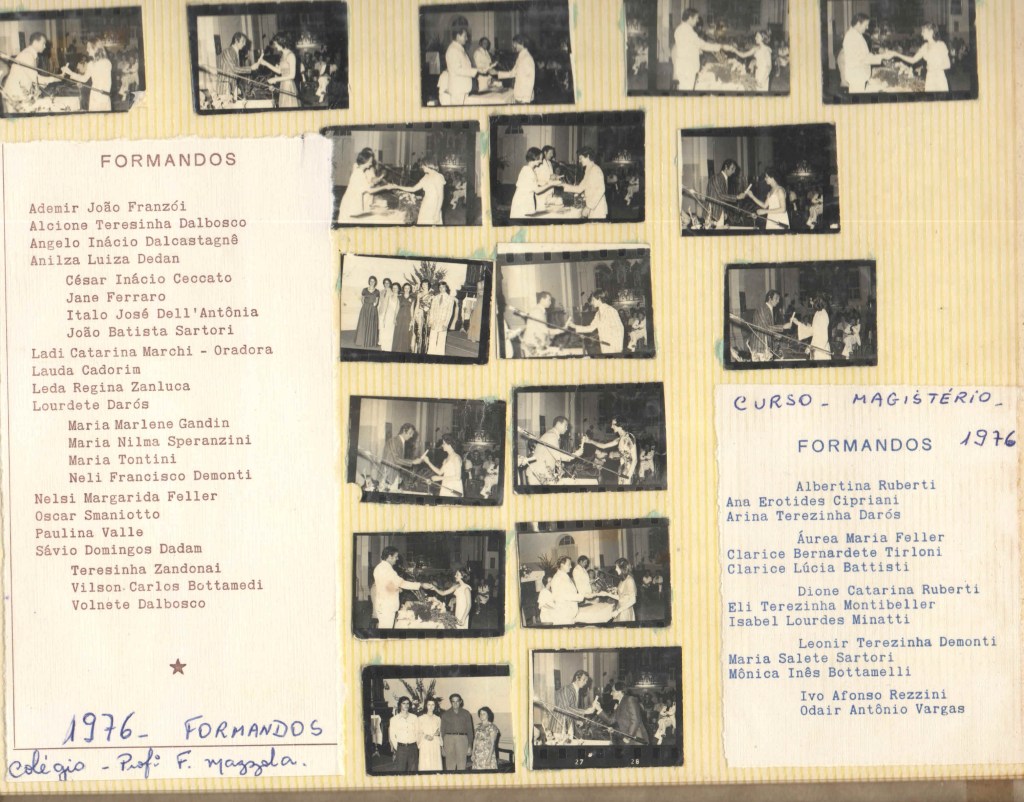 FORMANDOS
Ademir João Franzói
Alcione Teresinha Dalbosco
Angelo Inácio Dalcastagnê
Anilza Luiza Dedan
César Inácio Ceccato
Jane Ferraro
Italo José Dell'Antônia
João Batista Sartori
Ladi Catarina Marchi - Oradora
Lauda Cadorim
Leda Regina Zanluca
Lourdete Darós
Maria Marlene Gandin
Maria Nilma Speranzini
Maria Tontini
Neli Francisco Demonti
Nelsi Margarida Feller
Oscar Smaniotto
Paulina Valle
Sávio Domingos Dadam
Teresinha Zandonai
Vilson Carlos Bottamedi
Volnete Dalbosco
1976- FORMANDOS
Colégio - Profº F. Mazzola.
27 28
CURSO - MAGISTÉRIO -
FORMANDOS 1976
Albertina Ruberti
Ana Erotides Cipriani
Arina Terezinha Darós
Áurea Maria Feller
Clarice Bernardete Tirloni
Clarice Lúcia Battisti
Dione Catarina Ruberti
Eli Terezinha Montibeller
Isabel Lourdes Minatti
Leonir Terezinha Demonti
Maria Salete Sartori
Mônica Inês Bottamelli
Ivo Afonso Rezzini
Odair Antônio Vargas